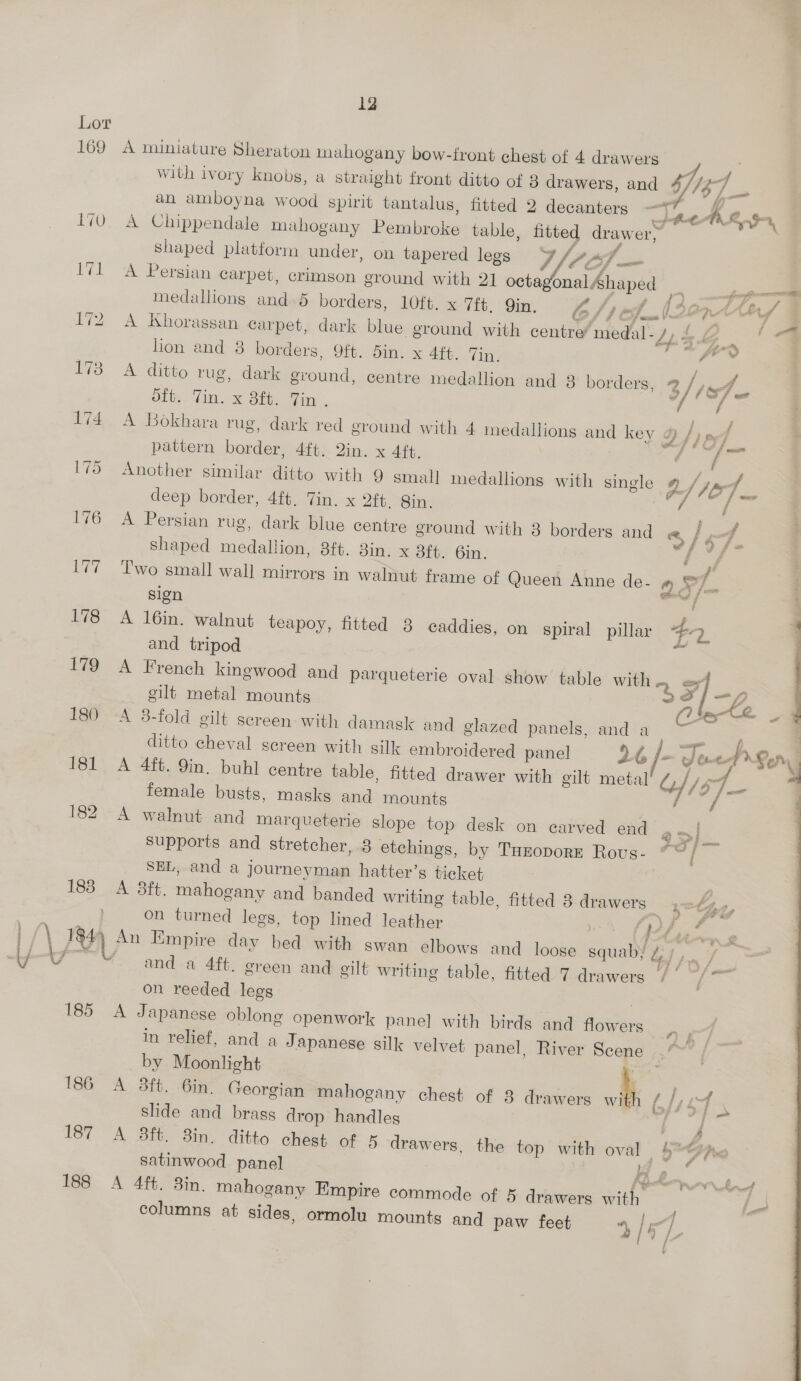 12
Lot
169 A miniature Sheraton mahogany bow-front chest of 4 drawers
with ivory knobs, a straight front ditto of 3 drawers, and
an amboyna wood spirit tantalus, fitted 2 decanters
170 A Chippendale mahogany Pembroke table, fitted drawer,
shaped platform under, on tapered legs
171 A Persian carpet, crimson ground with 21 octagonal shaped
medallions and 5 borders, 10ft. x 7ft. 9in.
172 A Khorassan carpet, dark blue ground with centre medal-
lion and 3 borders, 9ft. 5in. x 4ft. 7in.
173 A ditto rug, dark ground, centre medallion and 3 borders,
5ft. 7in. x 3ft. 7in.
174 A Bokhara rug, dark red ground with 4 medallions and key
pattern border, 4ft. 2in. x 4ft.
175 Another similar ditto with 9 small medallions with single
deep border, 4ft. 7in. x 2ft. 8in.
176 A Persian rug, dark blue centre ground with 3 borders and
shaped medallion, 3ft. 3in. x 3ft. 6in.
177 Two small wall mirrors in walnut frame of Queen Anne de-
sign
178 A 16in. walnut teapoy, fitted 3 caddies, on spiral pillar
and tripod
179 A French kingwood and parqueterie oval show table with
gilt metal mounts
180 A 3-fold gilt screen with damask and glazed panels, and a
ditto cheval screen with silk embroidered panel
181 A 4ft. 9in. buhl centre table, fitted drawer with gilt metal
female busts, masks and mounts
182 A walnut and marqueterie slope top desk on carved end
supports and stretcher, 3 etchings, by THEODORE ROUS-
SEL, and a journeyman hatter's ticket
183 A 3ft. mahogany and banded writing table, fitted 3 drawers
on turned legs, top lined leather
184 An Empire day bed with swan elbows and loose squab,
and a 4ft. green and gilt writing table, fitted 7 drawers
on reeded legs
185 A Japanese oblong openwork panel with birds and flowers
in relief, and a Japanese silk velvet panel, River Scene
by Moonlight
186 A 3ft. 6in. Georgian mahogany chest of 3 drawers with
slide and brass drop handles
187 A 3ft. 3in. ditto chest of 5 drawers, the top with oval
satinwood panel
188 A 4ft. 3in. mahogany Empire commode of 5 drawers with
columns at sides, ormolu mounts and paw feet